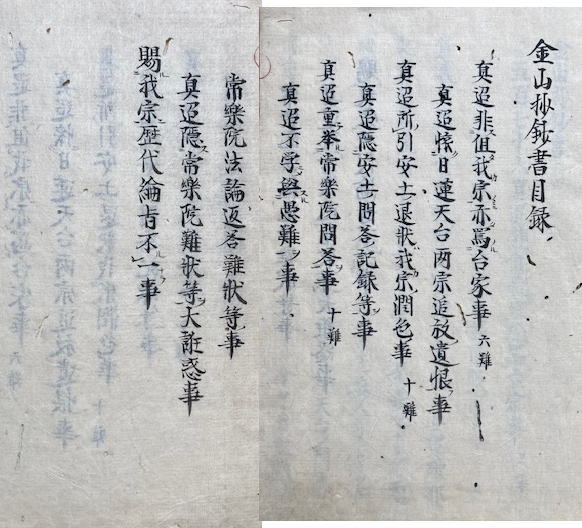 金山抄鈔書目録
真迢非但我宗亦罵台家事 六難
真迢懐日蓮天台両宗追放遺恨事
真迢所引安土退状我宗潤色事 十難
真迢隠安土問答記録等事
真迢重挙常樂院問答事 十難
真迢不学與愚難一事
常樂院法論返答難状等事
真迢隠常樂院難状等大誑惑事
賜我宗歴代綸旨不一事